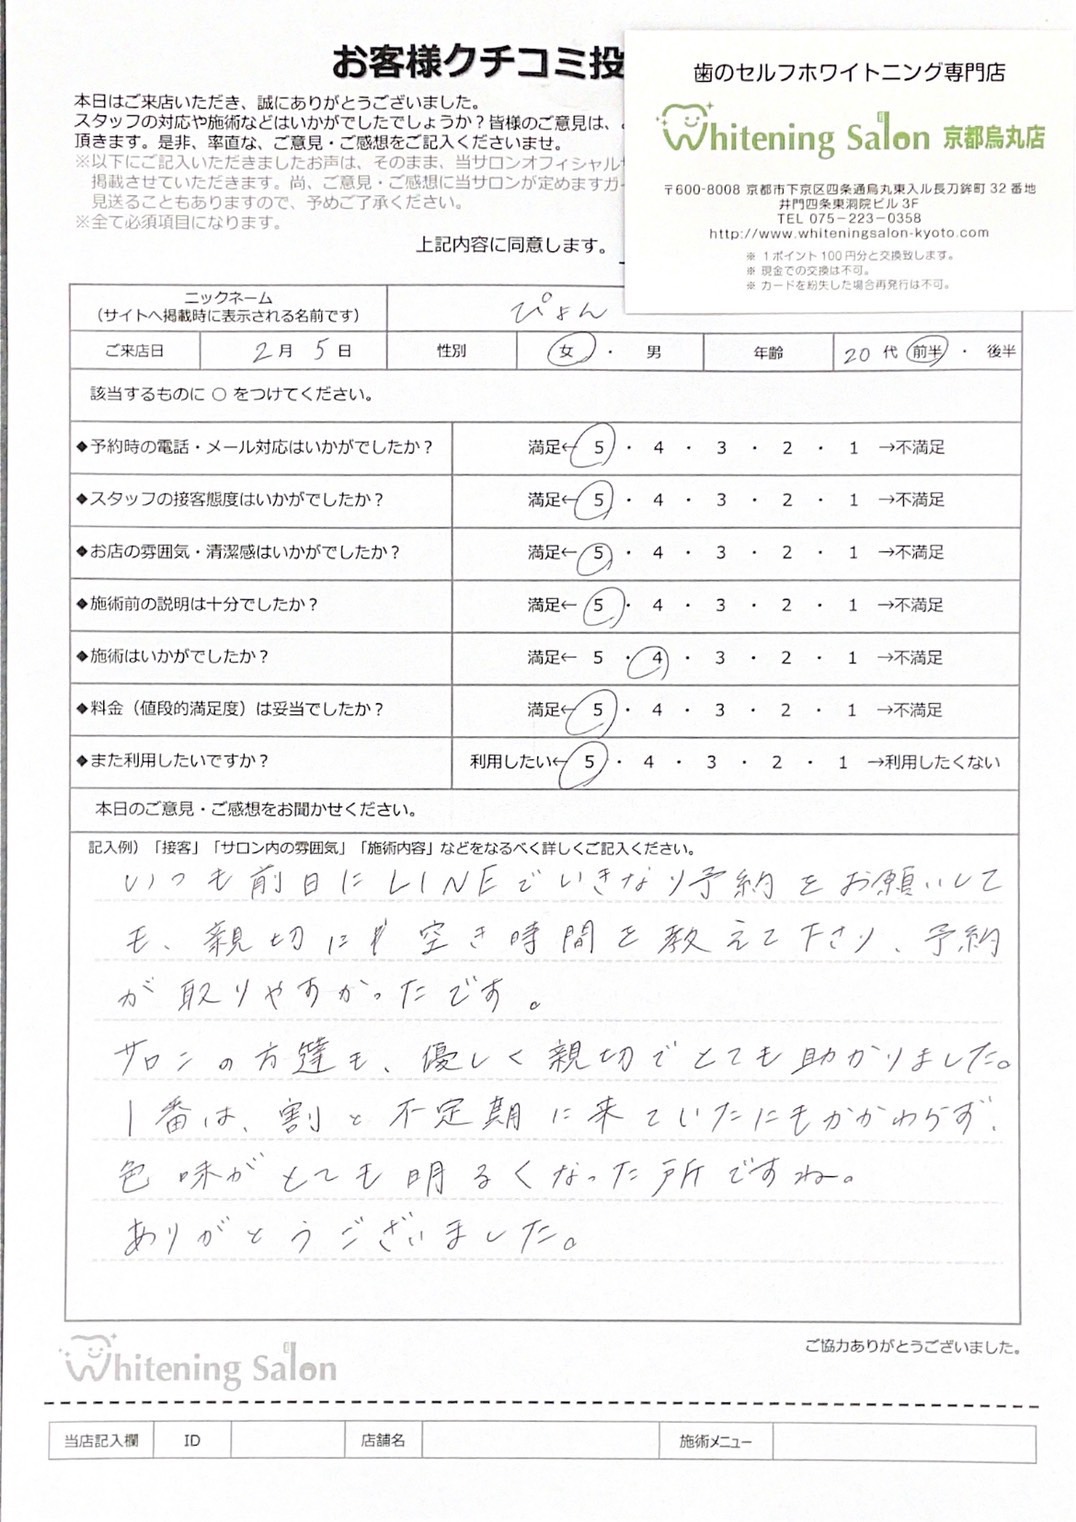 お客様クチコミ投
本日はご来店いただき、誠にありがとうございました。
スタッフの対応や施術などはいかがでしたでしょうか？皆様のご意見は、
頂きます。是非、率直な、ご意見・ご感想をご記入くださいませ。
※以下にご記入いただきましたお声は、そのまま、当サロンオフィシャル
掲載させていただきます。尚、ご意見・ご感想に当サロンが定めますガ
見送ることもありますので、予めご了承ください。
※全て必須項目になります。
上記内容に同意します。
歯のセルフホワイトニング専門店
Whitening Salon 京都烏丸店
〒600-8008 京都市下京区四条通烏丸東入ル長刀鉾町 32 番地
井門四条東洞院ビル 3F
TEL 075-223-0358
http://www.whiteningsalon-kyoto.com
※ 1ポイント 100 円分と交換致します。
※ 現金での交換は不可。
※ カードを紛失した場合再発行は不可。
ニックネーム
（サイトへ掲載時に表示される名前です） ぴょん
ご来店日 2月 5日 性別 女 ・ 男 年齢 20 代 前半 ・ 後半
該当するものに ○ をつけてください。
◆予約時の電話・メール対応はいかがでしたか？ 満足← 5 ・ 4 ・ 3 ・ 2 ・ 1 →不満足
◆スタッフの接客態度はいかがでしたか？ 満足← 5 ・ 4 ・ 3 ・ 2 ・ 1 →不満足
◆お店の雰囲気・清潔感はいかがでしたか？ 満足← 5 ・ 4 ・ 3 ・ 2 ・ 1 →不満足
◆施術前の説明は十分でしたか？ 満足← 5 ・ 4 ・ 3 ・ 2 ・ 1 →不満足
◆施術はいかがでしたか？ 満足← 5 ・ 4 ・ 3 ・ 2 ・ 1 →不満足
◆料金（値段的満足度）は妥当でしたか？ 満足← 5 ・ 4 ・ 3 ・ 2 ・ 1 →不満足
◆また利用したいですか？ 利用したい← 5 ・ 4 ・ 3 ・ 2 ・ 1 →利用したくない
本日のご意見・ご感想をお聞かせください。
記入例）「接客」「サロン内の雰囲気」「施術内容」などをなるべく詳しくご記入ください。
いつも前日にLINEでいきなり予約をお願いして
も、親切に空き時間を教えて下さり、予約
が取りやすかったです。
サロンの方達も、優しく親切でとても助かりました。
1番は、割と不定期に来ていたにもかかわらず、
色味がとても明るくなった所ですね。
ありがとうございました。
Whitening Salon
ご協力ありがとうございました。
当店記入欄 ID 店舗名 施術メニュー